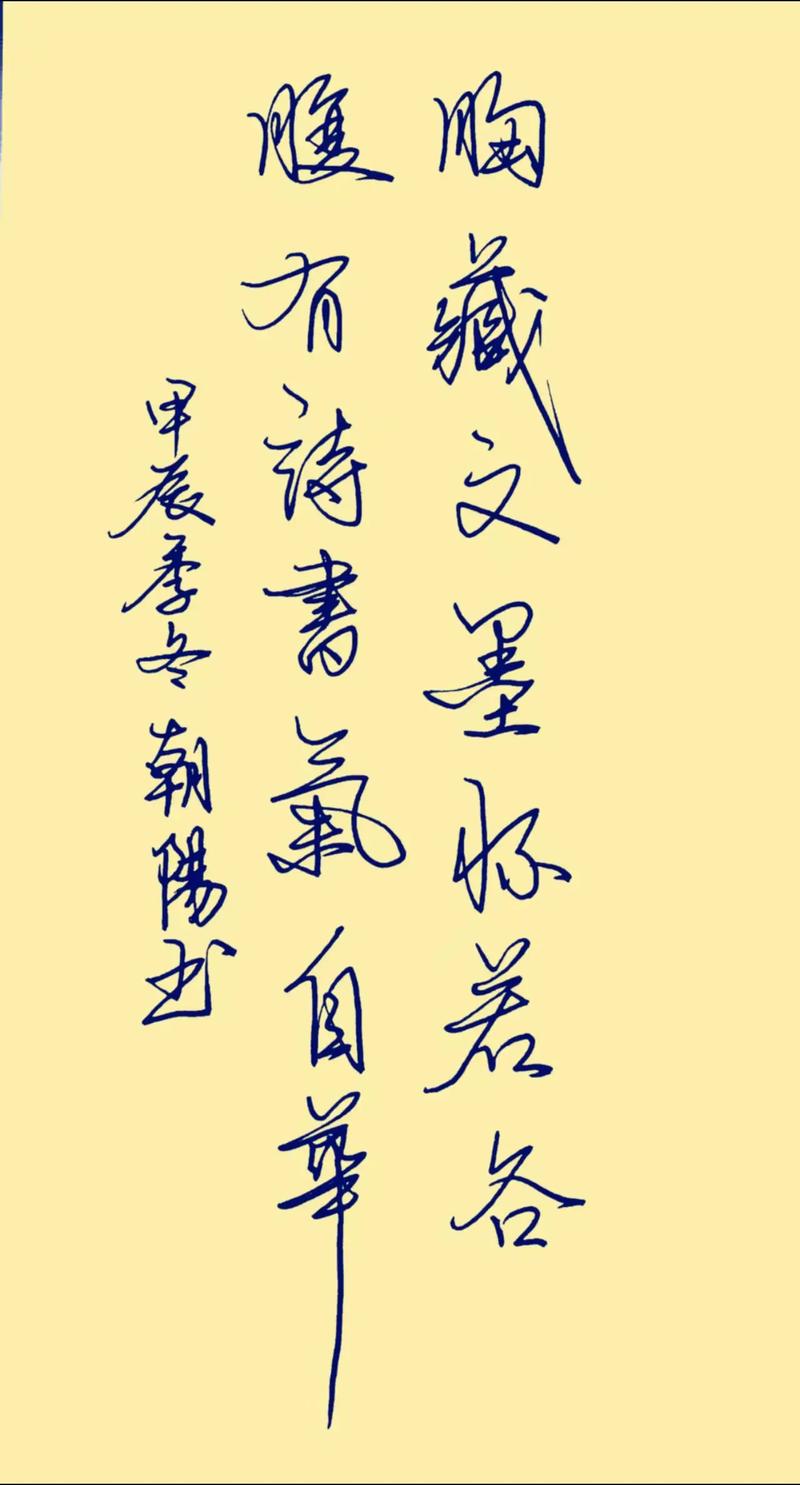 胸藏文墨怀若谷
腹有詩書氣自華
甲辰季冬朝陽书